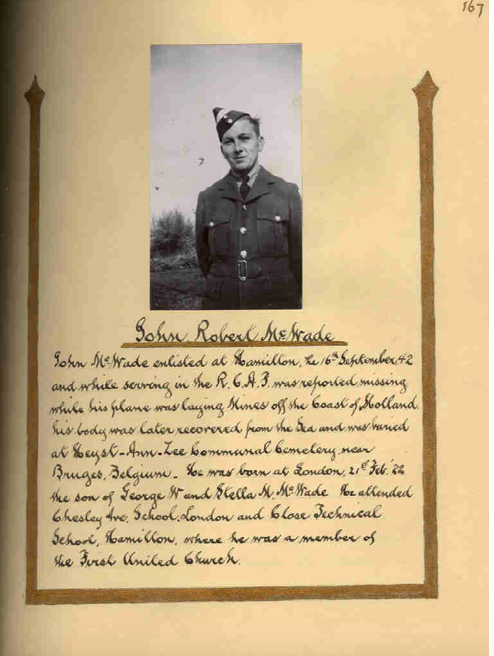 167
John Robert McWade
John McWade enlisted at Hamilton, the 16th September, 42
and while serving in the R.C.A.F. was reported missing
while his plane was laying Mines off the Coast of Holland.
his body was later recovered from the Sea and was buried
at Heyst-Ann-Zee Communal Cemetery near
Bruges, Belgium. He was born at London, 21st Feb. '22
the son of George W and Stella M. McWade He attended
Chesley Ave. School, London and Close Technical
School, Hamilton, where he was a member of
the First United Church.